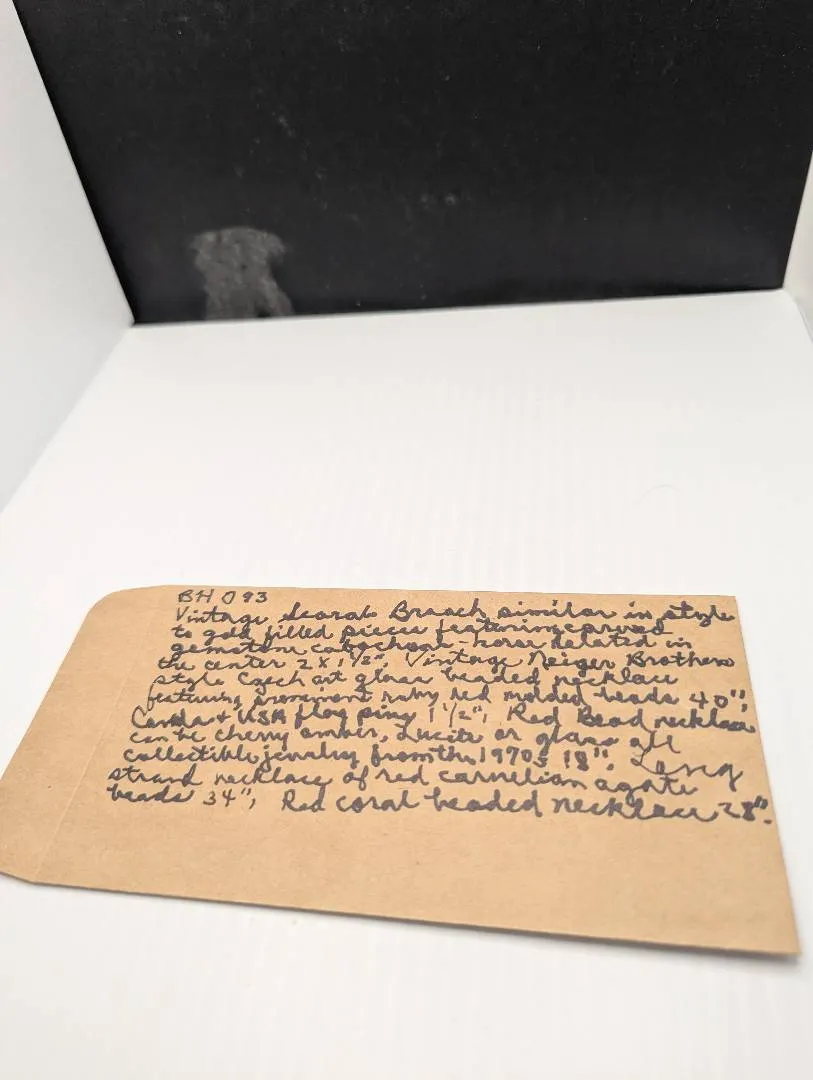 BH 093
Vintage Scarab Brooch similar in style
to gold filled pieces featuring carved
gemstone cabochons horse related in
the center 2 x 1 1/2", Vintage Neiger Brothers
style Czech art glass beaded necklace
featuring prominent ruby red molded beads 40",
Canada + USA flag pins 1 1/2", Red Bead necklace
can be cherry amber, Lucite or glass all
collectible jewelry from the 1970s 18", Long
strand necklace of red carnelian agate
beads 34", Red coral beaded necklace 28".